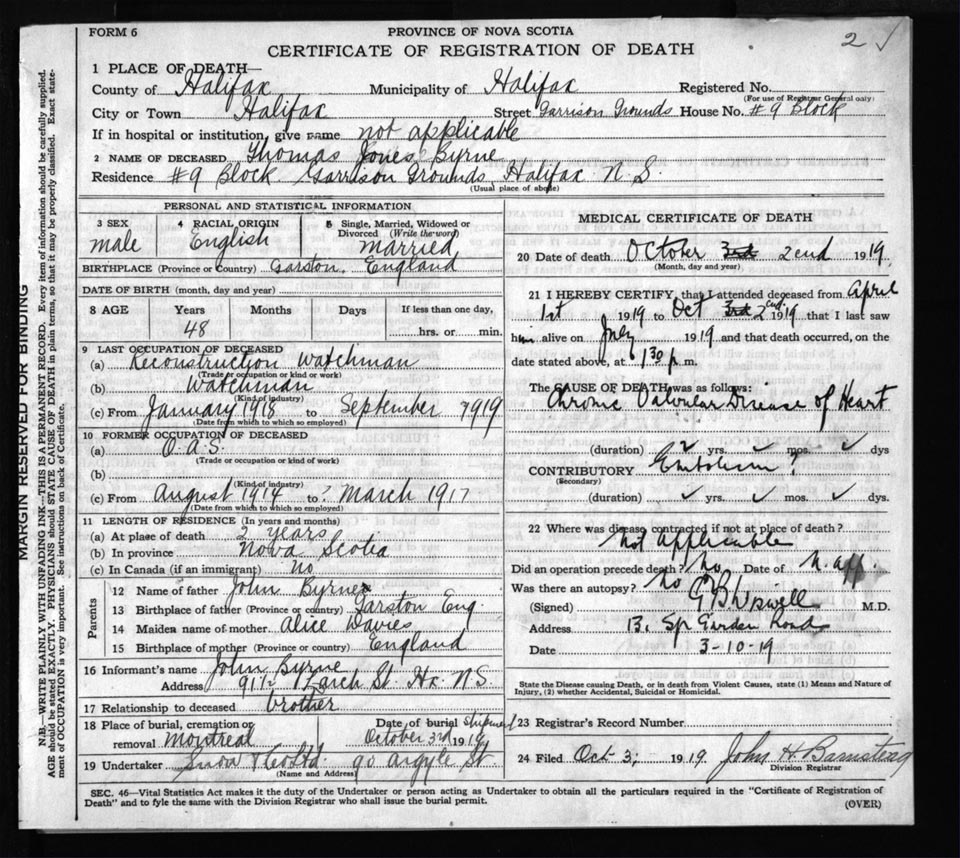 FORM 6
PROVINCE OF NOVA SCOTIA
2 ✓
CERTIFICATE OF REGISTRATION OF DEATH
1 PLACE OF DEATH—
County of Halifax Municipality of Halifax Registered No.
(For use of Registrar General only)
City or Town Halifax Street Garrison Grounds House No. #9 Block
If in hospital or institution, give name not applicable
2 NAME OF DECEASED Thomas Jones Byrne
Residence #9 Block Garrison Grounds Halifax N.S.
(Usual place of abode)
PERSONAL AND STATISTICAL INFORMATION
3 SEX 4 RACIAL ORIGIN 5 Single, Married, Widowed or Divorced (Write the word)
male English married
BIRTHPLACE (Province or Country) Garston, England
DATE OF BIRTH (month, day and year)
8 AGE Years Months Days If less than one day,
48 hrs. or min.
9 LAST OCCUPATION OF DECEASED
(a) Reconstruction Watchman
(Trade or occupation or kind of work)
(b) Watchman
(Kind of industry)
(c) From January 1918 to September 1919
(Date from which to which so employed)
10 FORMER OCCUPATION OF DECEASED
(a) O.A.S.
(Trade or occupation or kind of work)
(b)
(Kind of industry)
(c) From August 1914 to ? March 1917
(Date from which to which so employed)
11 LENGTH OF RESIDENCE (In years and months)
(a) At place of death 2 years
(b) In province Nova Scotia
(c) In Canada (if an immigrant) no
Parents
12 Name of father John Byrne
13 Birthplace of father (Province or country) Garston Eng
14 Maiden name of mother Alice Davies
15 Birthplace of mother (Province or country) England
16 Informant's name John Byrne
Address 91½ St. Hx. N.S.
17 Relationship to deceased brother
18 Place of burial, cremation or removal Montreal
Date of burial shipment October 3rd 1919
19 Undertaker Snow & Co Ltd. 90 Argyle St.
(Name and Address)
MEDICAL CERTIFICATE OF DEATH
20 Date of death October 3rd 2cnd 1919
(Month, day and year)
21 I HEREBY CERTIFY, that I attended deceased from April
1st 1919 to Oct 3rd 2cnd 1919 that I last saw
him alive on July 1919 and that death occurred, on the
date stated above, at 1 30 p.m.
The CAUSE OF DEATH was as follows:
Chronic Valvular Disease of Heart
(duration) 2 yrs. ✓ mos. ✓ dys
CONTRIBUTORY Embolism ?
(Secondary)
(duration) ✓ yrs. ✓ mos. ✓ dys.
22 Where was disease contracted if not at place of death?
Not Applicable
Did an operation precede death? No Date of N. app
Was there an autopsy? No
(Signed) G B Wiswell M.D.
Address 13, Sp Garden Road
Date 3-10-19
State the Disease causing Death, or in death from Violent Causes, state (1) Means and Nature of
Injury, (2) whether Accidental, Suicidal or Homicidal.
23 Registrar's Record Number
24 Filed Oct 3; 1919 John H Barnstead
Division Registrar
SEC. 46—Vital Statistics Act makes it the duty of the Undertaker or person acting as Undertaker to obtain all the particulars required in the "Certificate of Registration of
Death" and to fyle the same with the Division Registrar who shall issue the burial permit.
(OVER)
MARGIN RESERVED FOR BINDING
N.B.—WRITE PLAINLY WITH UNFADING INK—THIS IS A PERMANENT RECORD. Every item of information should be carefully supplied.
AGE should be stated EXACTLY. PHYSICIANS should STATE CAUSE OF DEATH in plain terms, so that it may be properly classified. Exact statement
of OCCUPATION is very important. See instructions on back of Certificate.